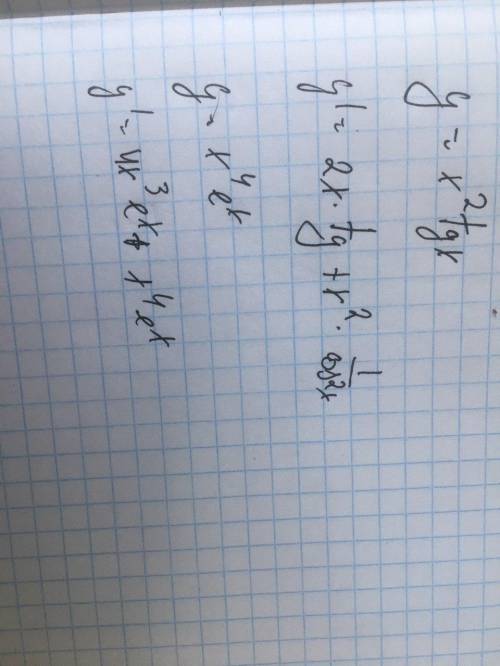 y = x² tgx
y' = 2x · tg + x² · 1/cos²x
y = x⁴ eˣ
y' = 4x³ eˣ + x⁴ eˣ